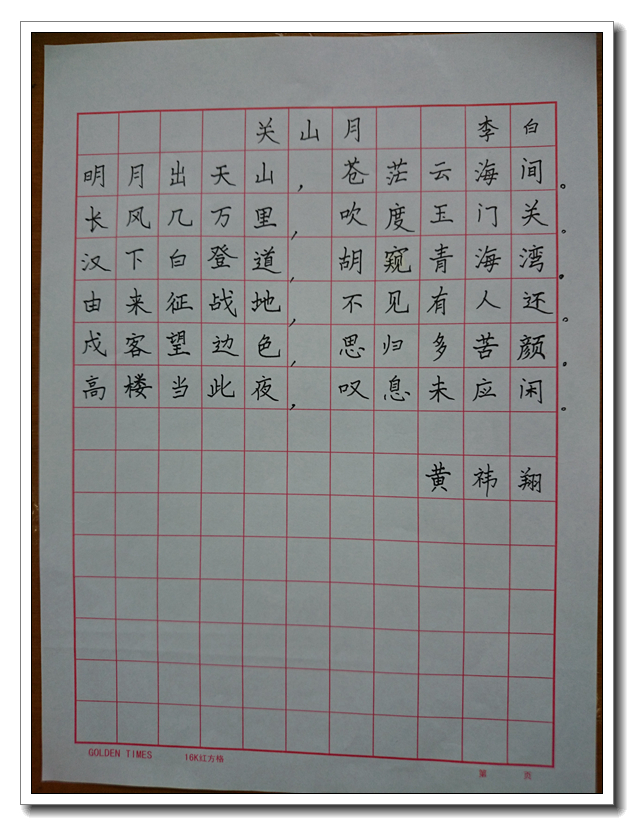 关山月 李白
明月出天山，苍茫云海间。
长风几万里，吹度玉门关。
汉下白登道，胡窥青海湾。
由来征战地，不见有人还。
戍客望边色，思归多苦颜。
高楼当此夜，叹息未应闲。
黄祎翔
GOLDEN TIMES 16K红方格
第 页